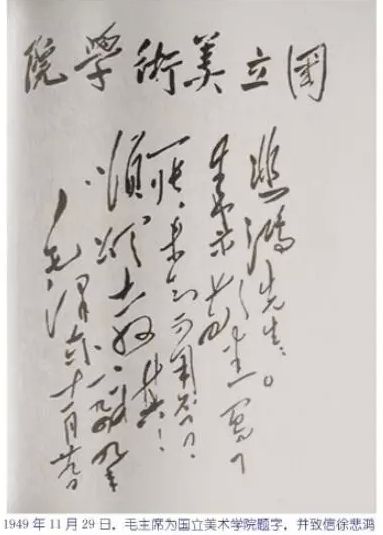 国立美術學院
悲鴻先生：
来示敬悉。写了
一張，未知可用否？
順頌
教祺！
毛澤东
十一月廿九日
1949 年 11 月 29 日，毛主席为国立美术学院题字，并致信徐悲鸿